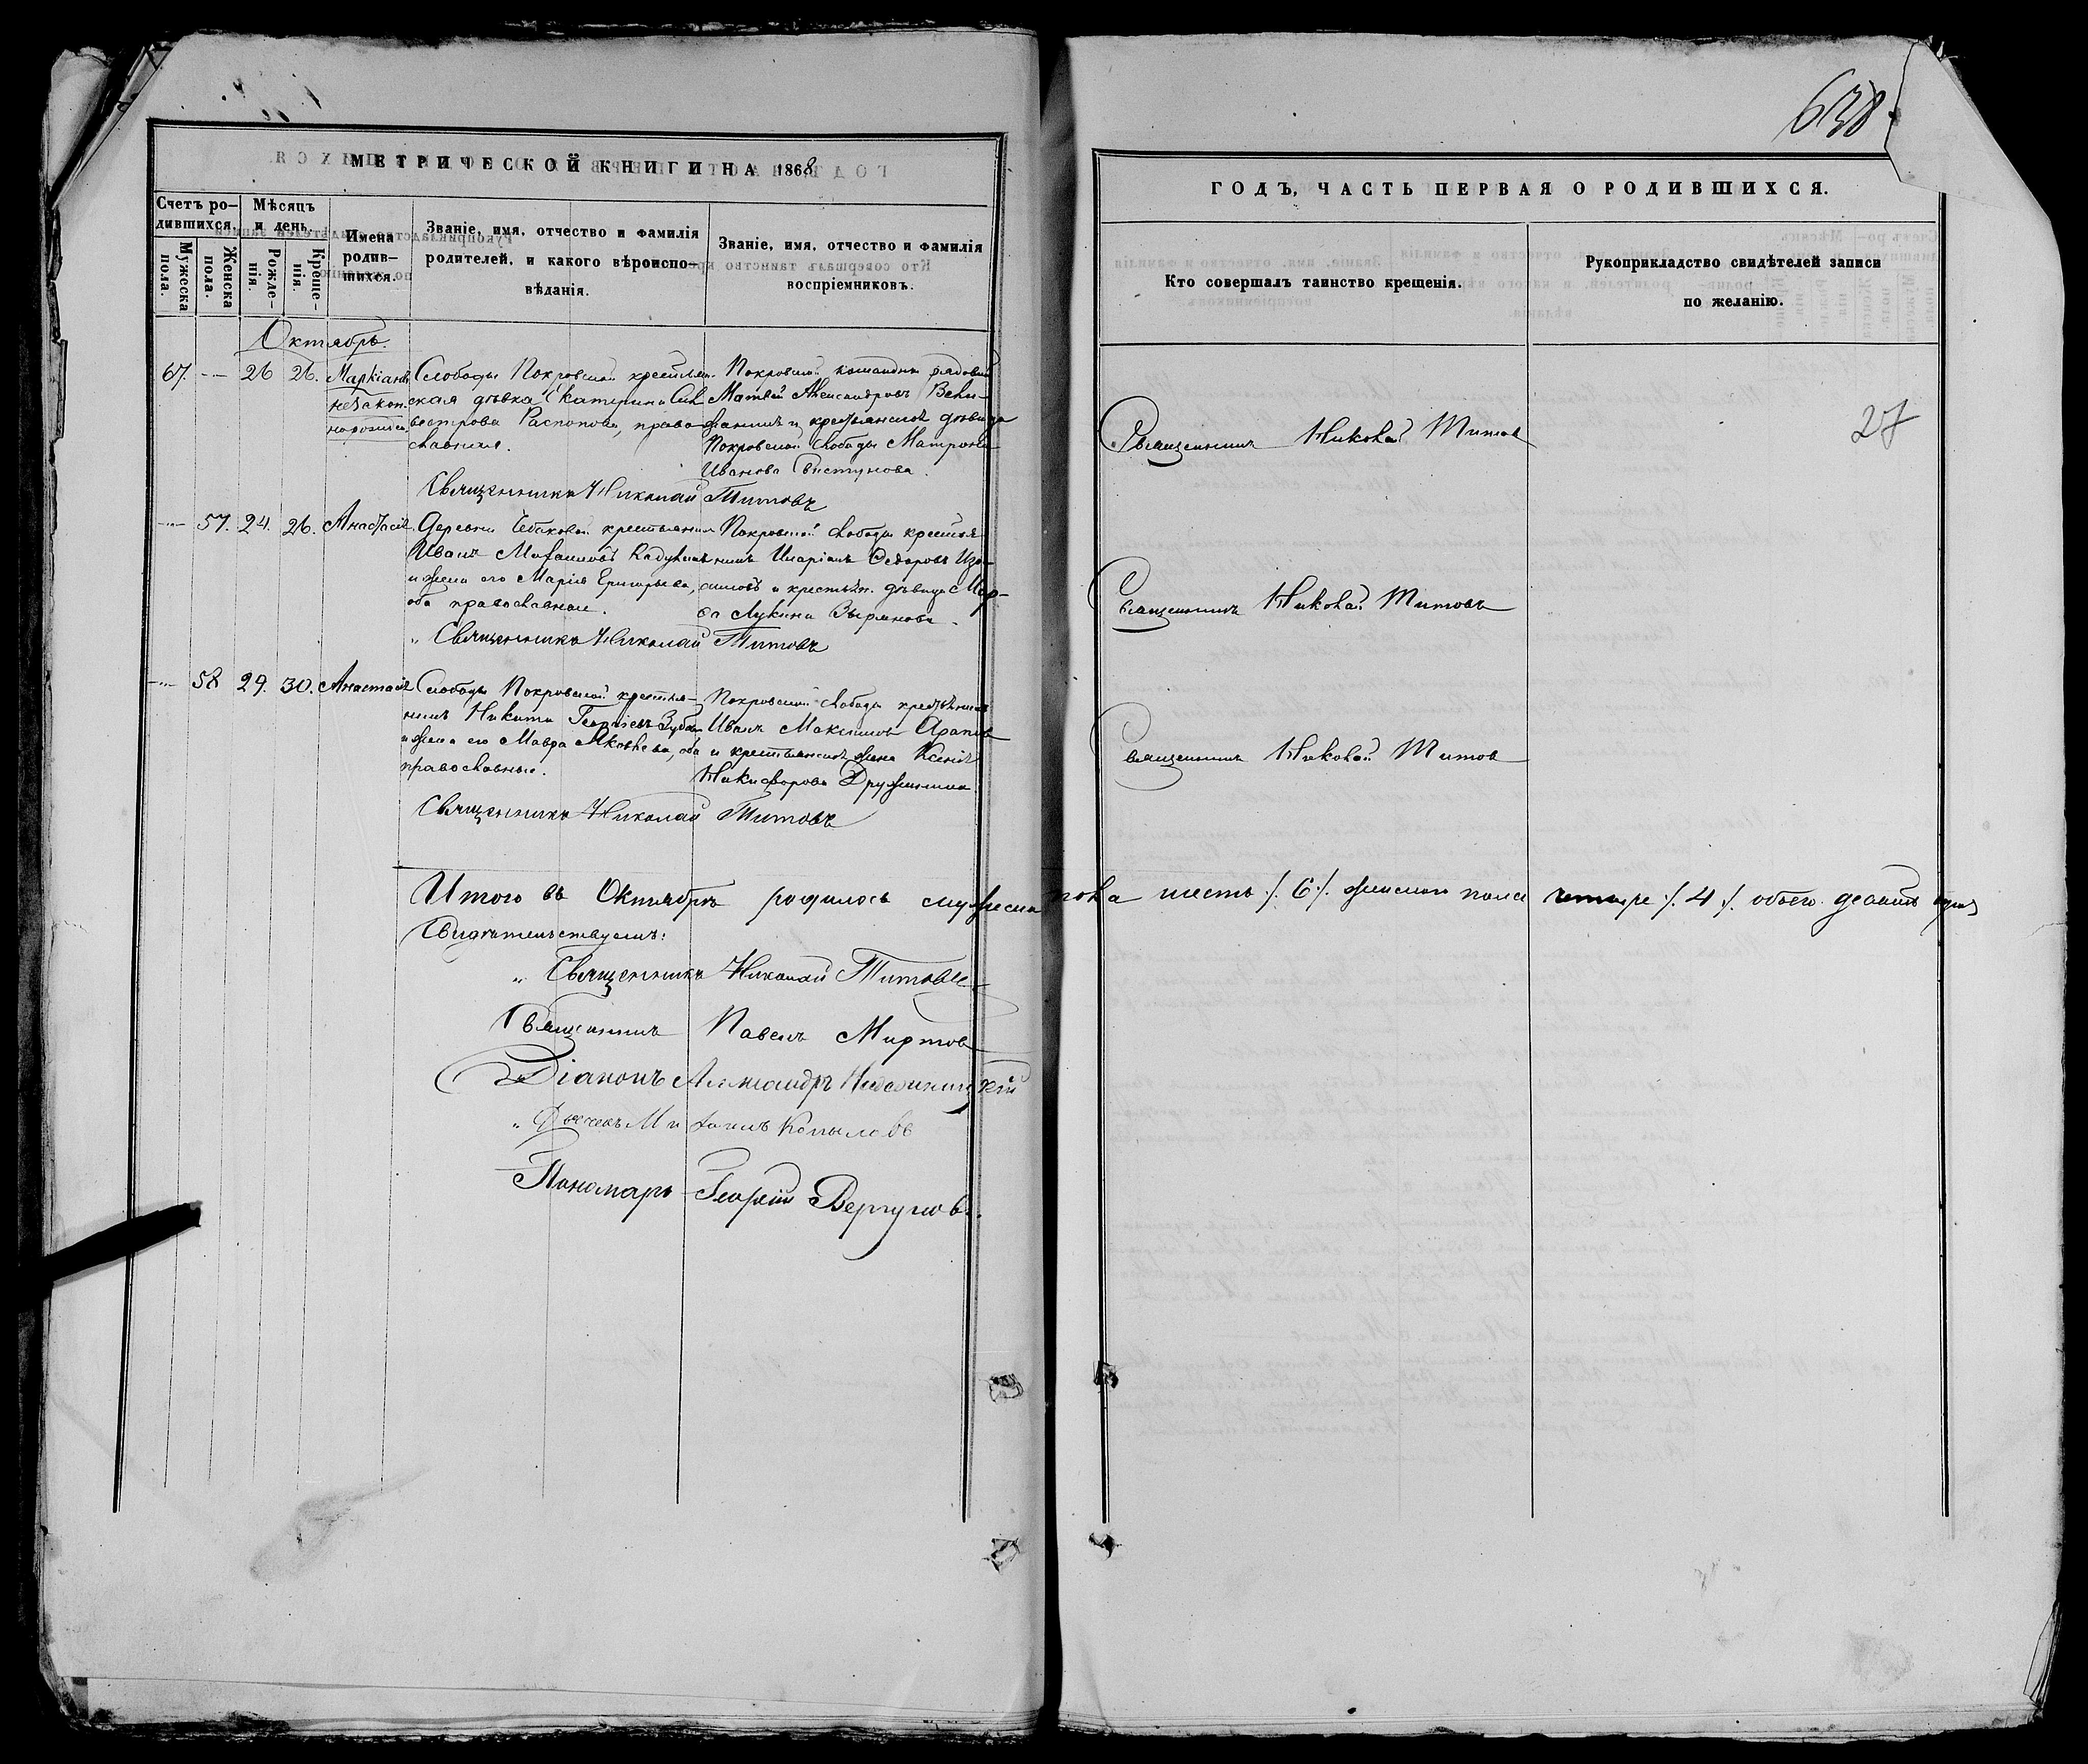 638
МЕТРИЧЕСКОЙ КНИГИ НА 1868
ГОДЪ, ЧАСТЬ ПЕРВАЯ О РОДИВШИХСЯ.
Счетъ ро-
дившихся.
Мужеска пола.
Женска пола.
Мѣсяцъ
и день.
Рожде-
нія.
Креще-
нія.
Имена
родив-
шихся.
Званіе, имя, отчество и фамилія
родителей, и какого вѣроиспо-
вѣданія.
Званіе, имя, отчество и фамилія
воспріемниковъ.
Кто совершалъ таинство крещенія.
Рукоприкладство свидѣтелей записи
по желанію.
27
Октябрь.
67. 26 26. Маркіанъ
незакон.
Слободы Покровской крестьян-
ская дѣвка Екатерина Сил
вестрова Распопова, право-
славная.
Покровской команды рядовой
Матвѣй Александровъ
и крестьянская дѣвица
Покровской слободы Матрона
Иванова Свистунова.
Священникъ Николай Титовъ
Священникъ Николай Титов
57. 24. 26. Анастасія
Деревни крестьянинъ
Иванъ Михайловъ
и жена его Марія Григорьева,
оба православные.
Покровской слободы крестья
нинъ Иларіонъ Ѳедоровъ Изо-
симовъ и крестьян. дѣвица Мар-
ѳа Лукина Зырянова.
Священникъ Николай Титовъ
Священникъ Николай Титовъ
58 29. 30. Анастасія
Слободы Покровской крестья-
нинъ Никита Георгіевъ
и жена его Мавра Яковлева, оба
православные.
Покровской слободы крестьянинъ
Иванъ Максимов
и крестьянская жена Ксенія
Никифорова Дружинина
Священникъ Николай Титовъ
Священникъ Николай Титов
Итого въ Октябрѣ родилось мужеска пола шесть ./. 6 ./. женского пола четыре ./. 4 ./. обоего десять душъ
Свидѣтельствуемъ:
Священникъ Николай Титовъ
Священникъ Павелъ Миртов
Діаконъ Александръ
Дьячекъ Михаилъ Копыловъ
Пономарь Георгій Вергуновъ.